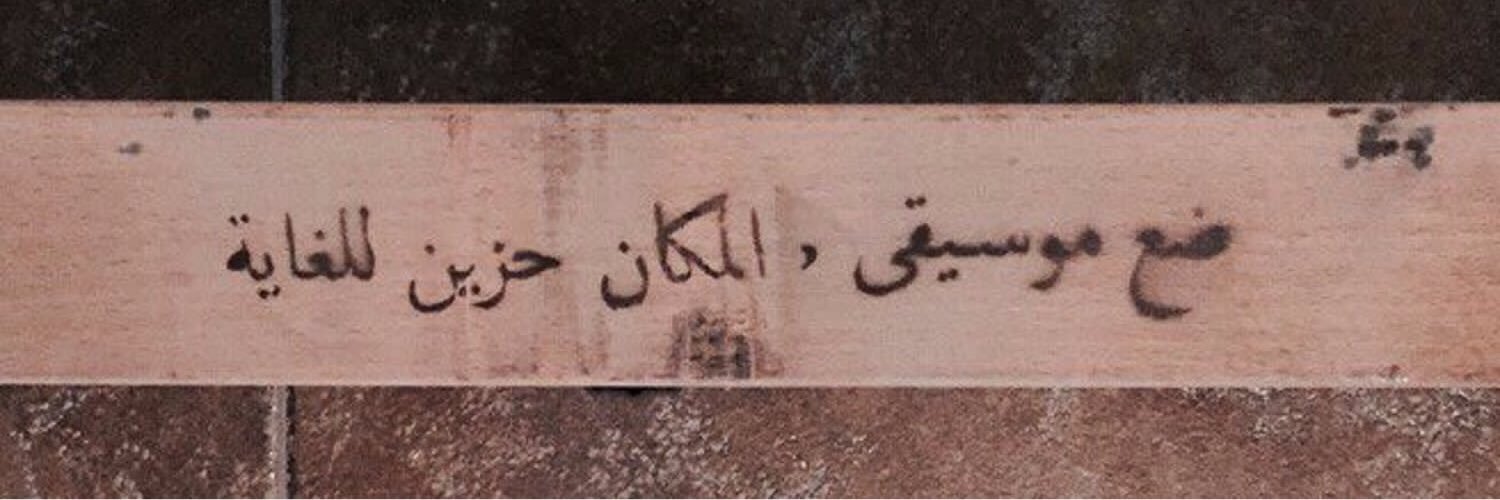 ضع موسيقى , المكان حزين للغاية